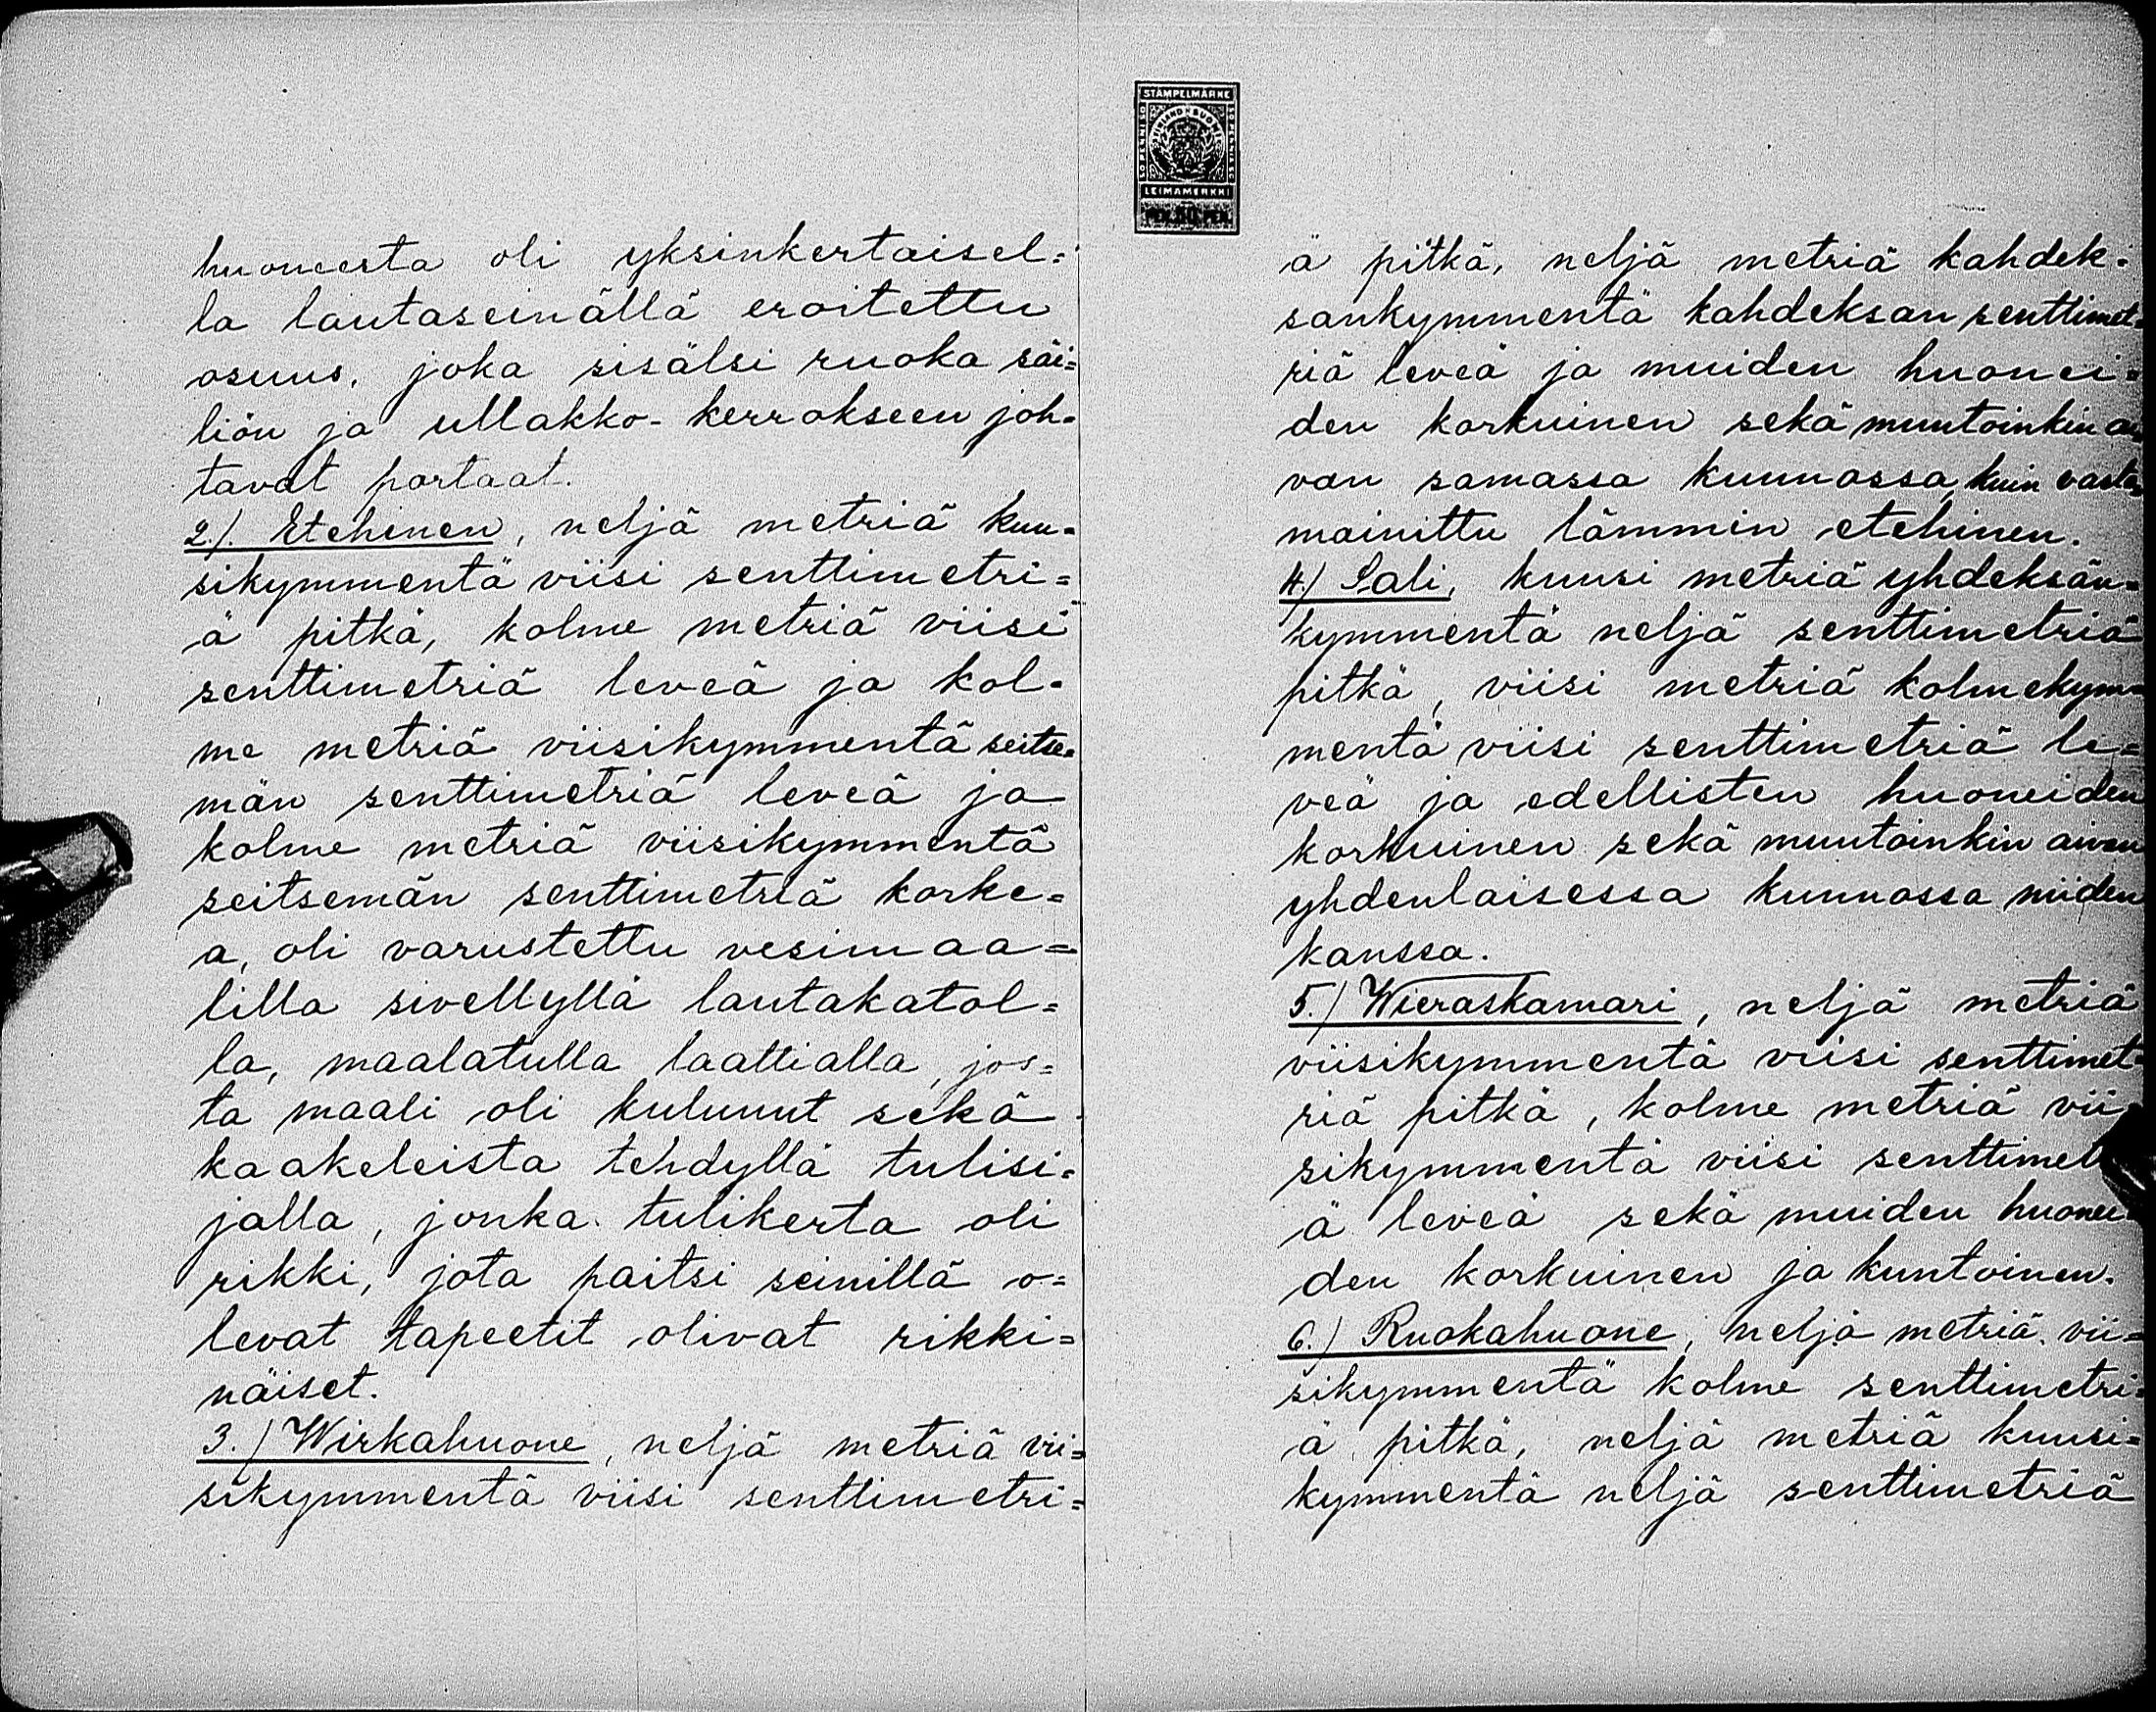 huoneesta oli yksinkertaisel=
la lautaseinällä eroitettu
osuus, joka sisälsi ruoka säi=
liön ja ullakko-kerrokseen joh=
tavat portaat.
2./. Etehinen, neljä metriä kuu=
sikymmentä viisi senttimetri=
ä pitkä, kolme metriä viisi
senttimetriä leveä ja kol=
me metriä viisikymmentä seitse=
män senttimetriä leveä ja
kolme metriä viisikymmentä
seitsemän senttimetriä korke=
a, oli varustettu vesimaa=
lilla sivellyllä lautakatol=
la, maalatulla laattialla, jos=
ta maali oli kulunut sekä
kaakeleista tehdyllä tulisi=
jalla, jonka tulikerta oli
rikki, jota paitsi seinillä o=
levat tapeetit olivat rikki=
näiset.
3./ Wirkahuone, neljä metriä vii=
sikymmentä viisi senttimetri=
STÄMPELMÄRKE
FINLAND SUOMI
50 PENNI 50
50 PENNIÄ 50
LEIMAMERKKI
PEN. 50 PEN.
ä pitkä, neljä metriä kahdek=
sankymmentä kahdeksan senttimet=
riä leveä ja muiden huonei=
den korkuinen sekä muutoinkin ai=
van samassa kunnossa kuin vasta=
mainittu lämmin etehinen.
4./ Sali, kuusi metriä yhdeksän=
kymmentä neljä senttimetriä
pitkä, viisi metriä kolmekym=
mentä viisi senttimetriä le=
veä ja edellisten huoneiden
korkuinen sekä muutoinkin aivan
yhdenlaisessa kunnossa niiden
kanssa.
5./ Wieraskamari, neljä metriä
viisikymmentä viisi senttimet=
riä pitkä, kolme metriä vii
sikymmentä viisi senttimet
ä leveä sekä muiden huonei
den korkuinen ja kuntoinen.
6./ Ruokahuone, neljä metriä vii=
sikymmentä kolme senttimetri=
ä pitkä, neljä metriä kuusi=
kymmentä neljä senttimetriä